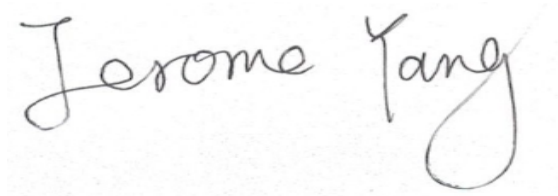 Jerome Yang